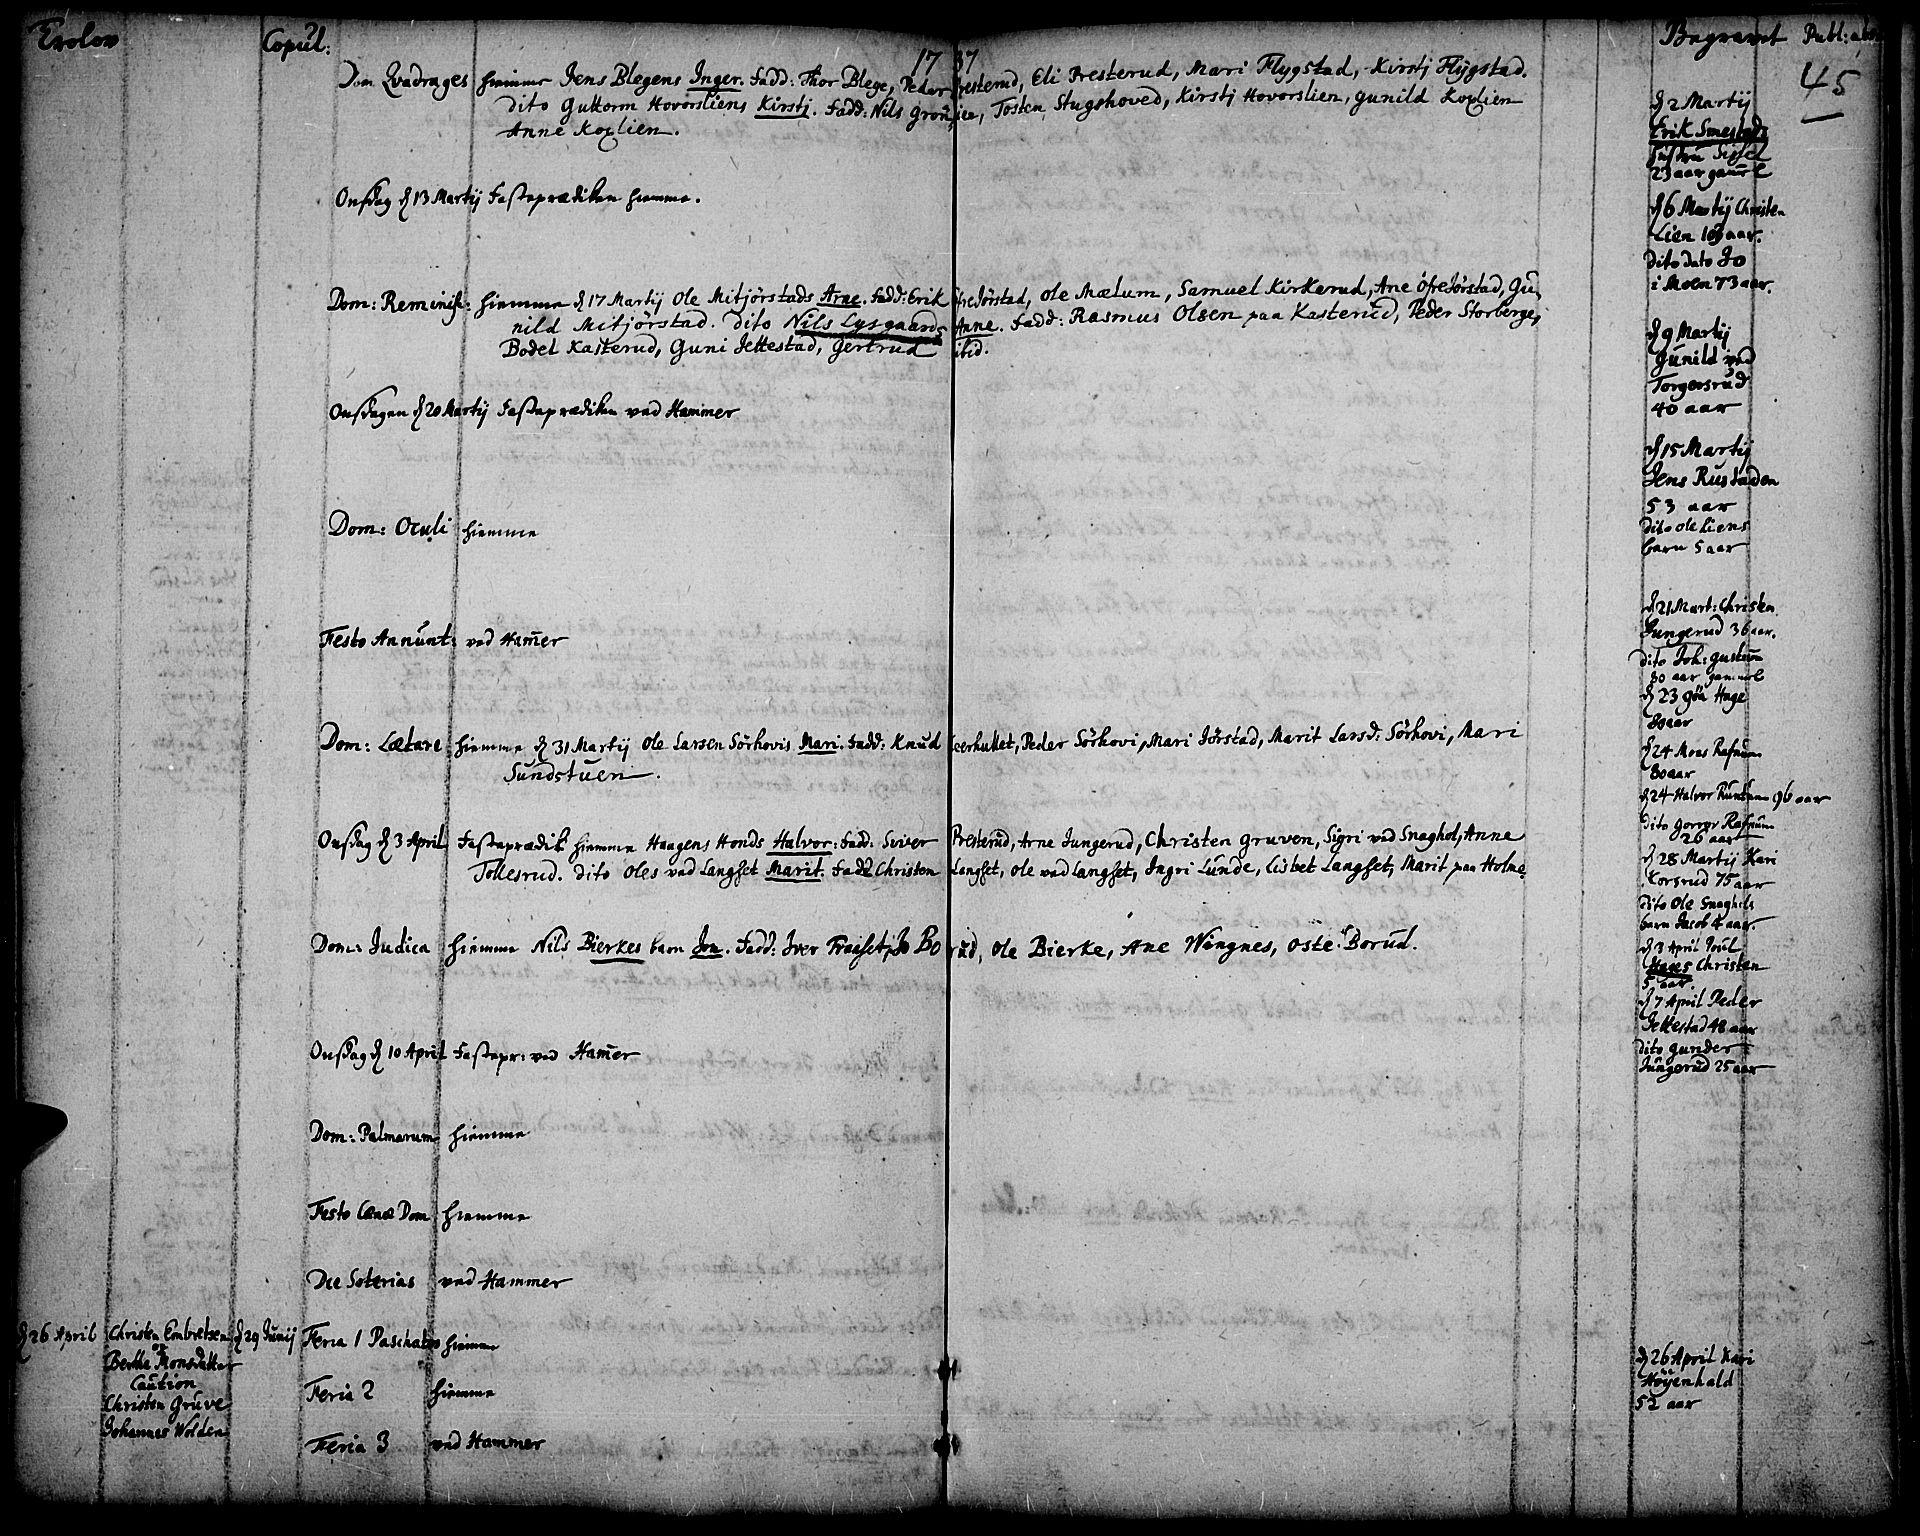 Trolov
Copul:
17 37
Begravet
Publ: abs
45
Dom Qvadrages hiemme Jens Blegens Inger. Fadd: Thor Blege, Peder Presterud, Eli Presterud, Mari Flygstad, Kirstj Flygstad.
dito Guttorm Hovorsliens Kirstj. Fadd: Nils Tosten Stugshoved, Kirstj Hovorslien, Gunild Koxlien
Anne Koxlien.
Onsdag d 13 Martij Fasteprædiken hiemme.
Dom: Reminisc: hiemme d 17 Martij Ole Mitjörstads Arne. Fadd: Erik öfreJörstad, Ole Mælum, Samuel Kirkerud, Ane öfreJörstad, Gu
nild Mitjörstad. dito Nils Lysgaards Anne. Fadd: Rasmus Olsen paa Kasterud, Peder Storberge,
Bodel Kasterud, Guni Jettestad, Gertrud ibid.
Onsdagen d 20 Martij Fasteprædiken ved Hammer
Dom: Oculi hiemme
Festo Annunt: ved Hamer
Dom: Lætare hiemme d 31 Martij Ole Larsen Sörhovis Mari. Fadd: Knud Peder Sörhovi, Mari Jörstad, Marit Larsd: Sörhovi, Mari
Sundstuen.
Onsdag d 3 April Fasteprædik hiemme Haagens Honds Halvor: Fadd: Sriver Presterud, Arne Jungerud, Christen Gruven, Sigri ved Snaghol, Anne
Tollesrud. dito Oles ved Langset Marit. Fadd Christen Langset, Ole ved Langset, Ingri Lunde, Lisbet Langset, Marit paa Holme.
Dom: Judica hiemme Nils Bierkes barn Jon. Fadd: Iver Fraiset, Jo Borud, Ole Bierke, Ane Wingnes, Oste Borud.
Onsdag d 10 April Fastepr: ved Hamer
Dom: Palmarum hiemme
Festo Cænæ Dom hiemme
Die Soterias ved Hammer
d 26 April Christen Embretsen d 29 Junij Feria 1 Paschatos hiemme
og
Berthe Monsdatter
Caution
Christen Gruve
Johannes Wolden
Feria 2 hiemme
Feria 3 ved Hammer
d 2 Martij
Erik Smestads
Sissel
23 aar gaml
d 6 Martij Christen
Lien 100 aar.
dito dato Jo
i Moen 73 aar.
d 9 Martij
Gunild ved
Torgersrud
40 aar
d 15 Martij
Jens Rustaden
53 aar
dito Ole Liens
barn 5 aar
d 21 Mart: Christen
Jungerud 36 aar.
dito Joh: Gustum
80 aar gammel
d 23 Göa Hage
80 aar
d 24 Mons Rafnum
80 aar
d 24 Halvor 96 aar
dito Rafnum
26 aar
d 28 Martij Kari
Korsrud 75 aar
dito Ole Snaghols
barn Jacob 4 aar.
d 3 April Poul
Hages Christen
5 aar.
d 7 April Peder
Jettestad 48 aar
dito Gunder
Jungerud 25 aar
d 26 April Kari
Höyenhald
52 aar